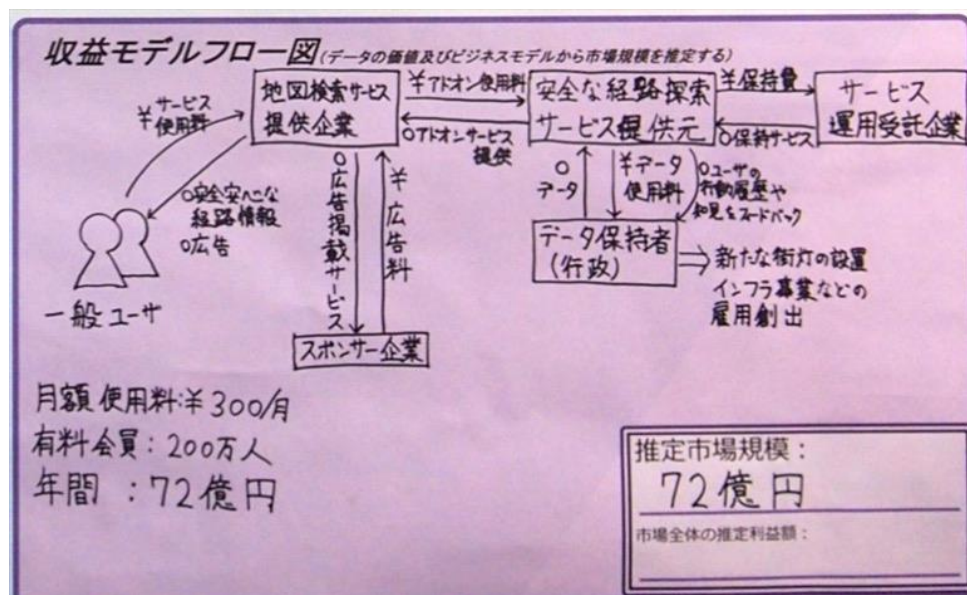 収益モデルフロー図(データの価値及びビジネスモデルから市場規模を推定する)
¥サービス
使用料
地図検索サービス
提供企業
¥アドオン使用料
○アドオンサービス
提供
安全な経路探索
サービス提供元
¥保持費
○保持サービス
サービス
運用受託企業
○安全安心な
経路情報
○広告
一般ユーザ
○広告掲載サービス
¥広告料
スポンサー企業
○
データ
¥データ
使用料
○ユーザの
行動履歴や
知見をフィードバック
データ保持者
(行政)
⇒新たな街灯の設置
インフラ事業などの
雇用創出
月額使用料:¥300/月
有料会員:200万人
年間:72億円
推定市場規模:
72億円
市場全体の推定利益額: